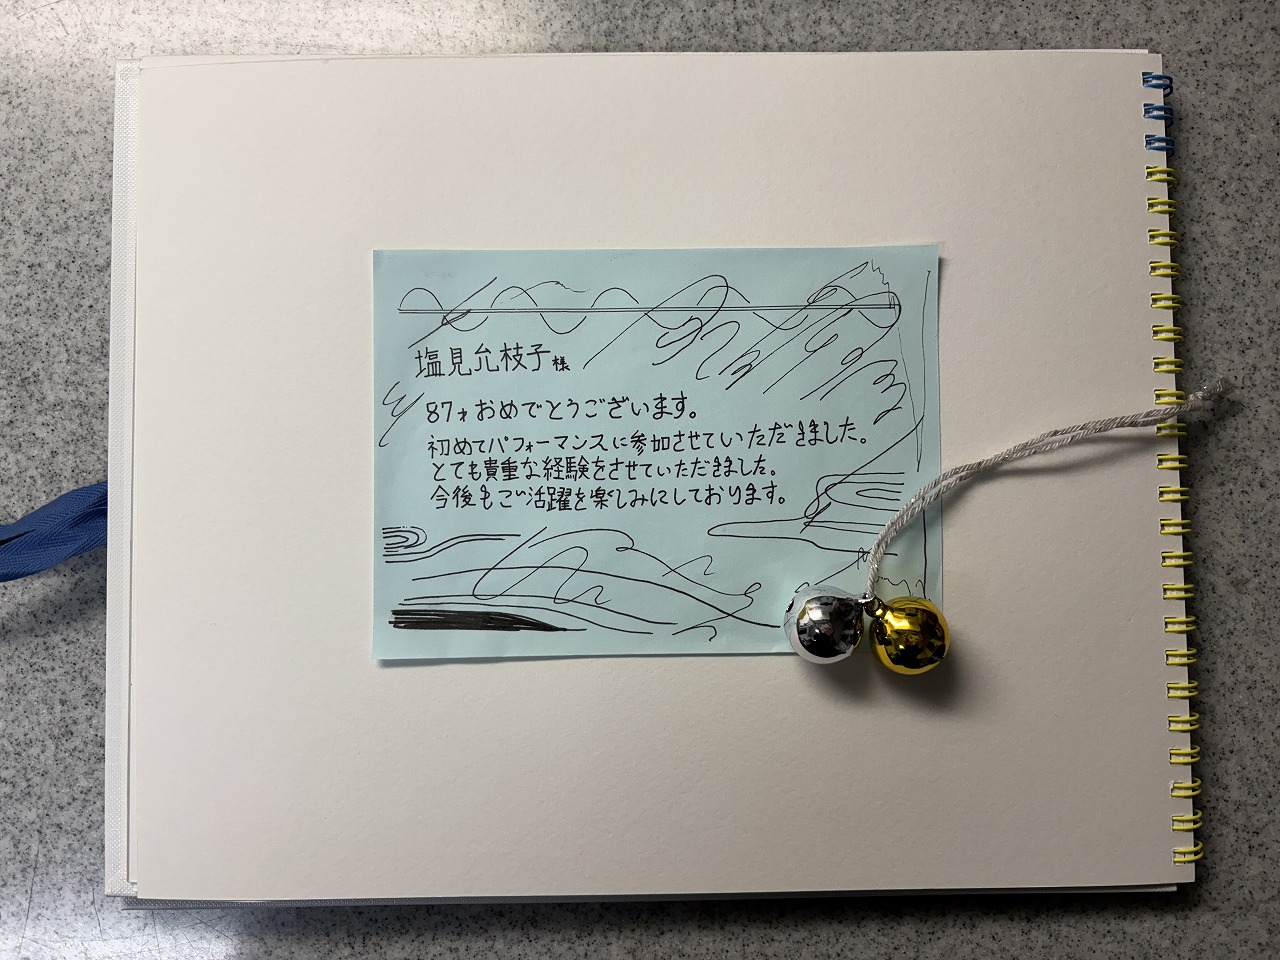 塩見允枝子様
87才おめでとうございます。
初めてパフォーマンスに参加させていただきました。
とても貴重な経験をさせていただきました。
今後もご活躍を楽しみにしております。